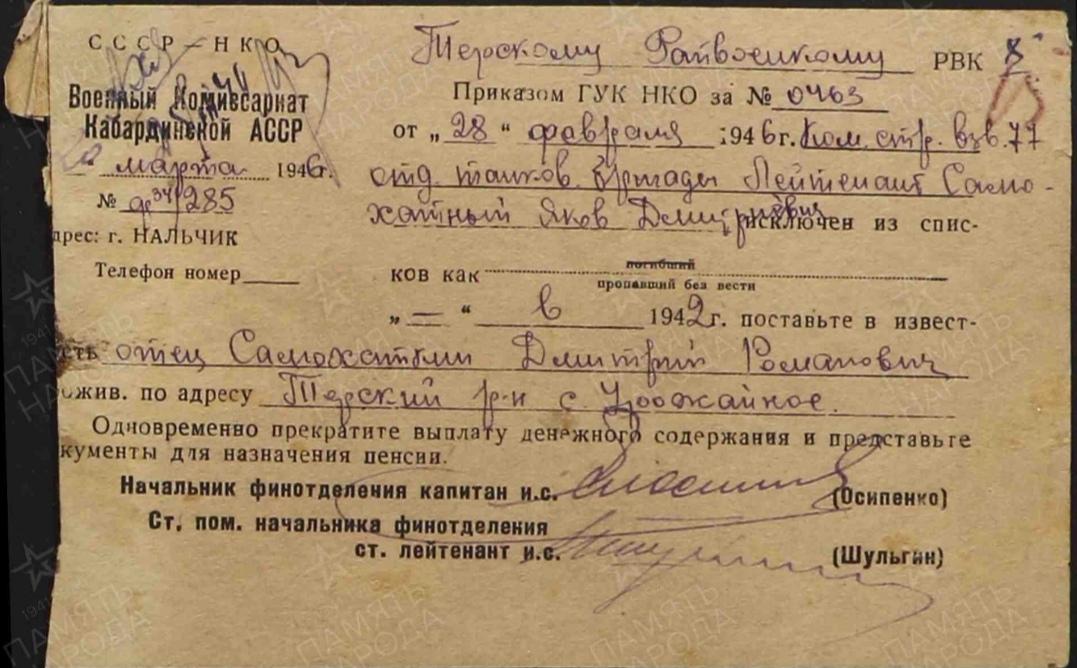 СССР — НКО
Военный Комиссариат
Кабардинской АССР
марта 1946г.
№ 285
дрес: г. НАЛЬЧИК
Телефон номер
Терскому Райвоенкому РВК
Приказом ГУК НКО за № 0463
от „28“ февраля 1946г. Ком. стр. взв. 77
отд. танков. бригады Лейтенант Само-
хатный Яков Дмитриевич исключен из спис-
ков как погибший
пропавший без вести
„—“ в 1942г. поставьте в извест-
сть отец Самохатный Дмитрий Романович
ожив. по адресу Терский р-н с. Урожайное.
Одновременно прекратите выплату денежного содержания и представьте
кументы для назначения пенсии.
Начальник финотделения капитан и.с. (Осипенко)
Ст. пом. начальника финотделения
ст. лейтенант и.с. (Шульгин)
ПАМЯТЬ НАРОДА